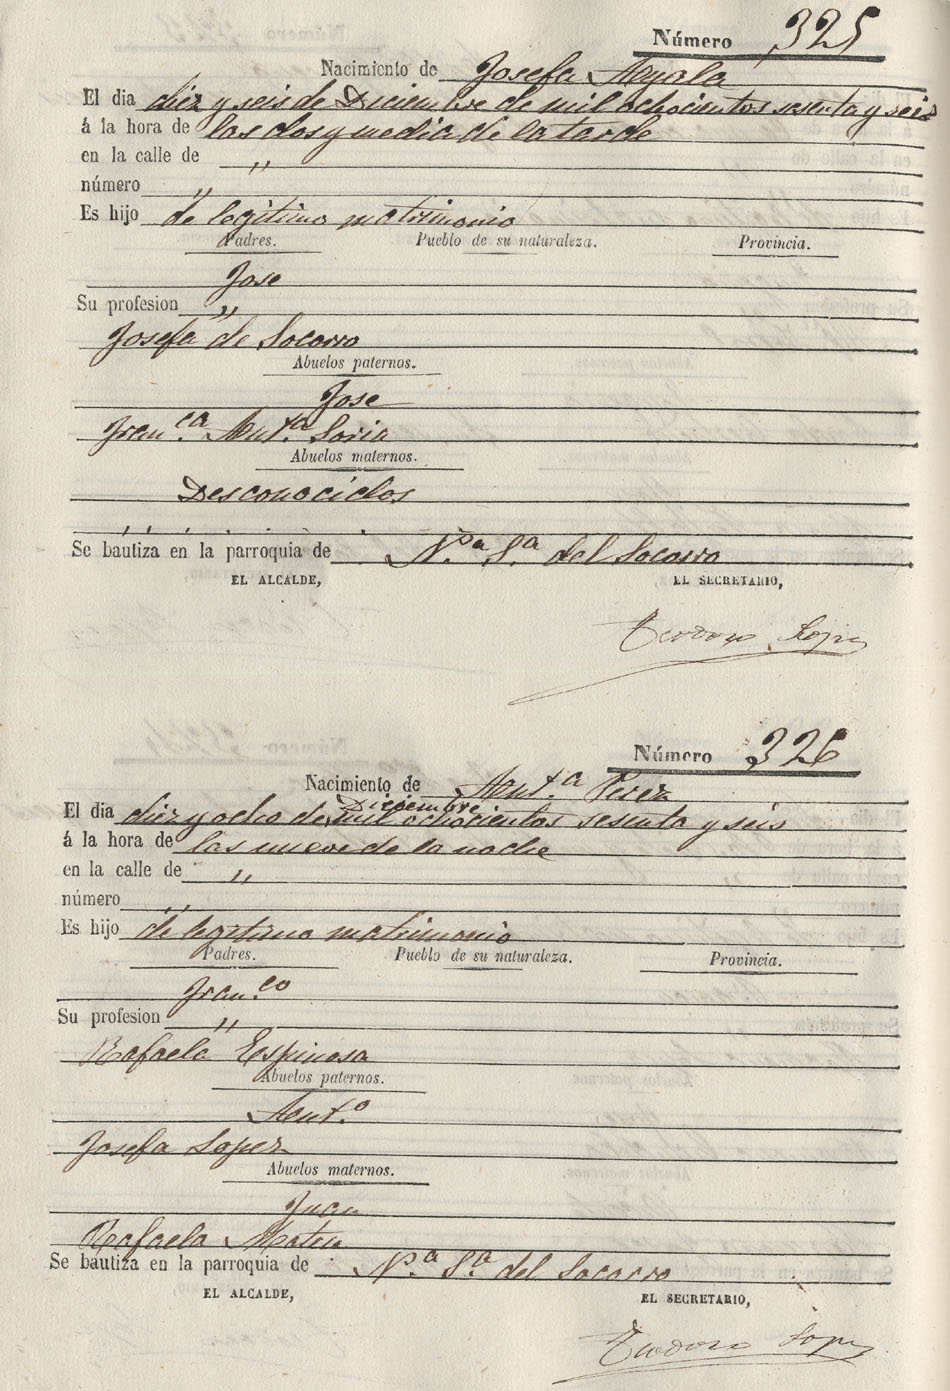 Número 325
Nacimiento de Josefa Ayala
El dia diez y seis de Diciembre de mil ochocientos sesenta y seis
á la hora de las dos y media de la tarde
en la calle de "
número "
Es hijo de legitimo matrimonio
Padres. Pueblo de su naturaleza. Provincia.
Jose
Su profesion "
Josefa de Socorro
Abuelos paternos.
Jose
Fran.ca Ant.a Soria
Abuelos maternos.
Desconocidos
Se bautiza en la parroquia de N.ra S.a del Socorro
EL ALCALDE, EL SECRETARIO,
Teodoro Lopez
Número 326
Nacimiento de Ant.a Perez
Diciembre
El dia diez y ocho de mil ochocientos sesenta y seis
á la hora de las nueve de la noche
en la calle de "
número "
Es hijo de legitimo matrimonio
Padres. Pueblo de su naturaleza. Provincia.
Fran.co
Su profesion "
Rafaela Espinosa
Abuelos paternos.
Ant.o
Josefa Lopez
Abuelos maternos.
Juan
Rafaela
Se bautiza en la parroquia de N.a S.a del Socorro
EL ALCALDE, EL SECRETARIO,
Teodoro Lopez